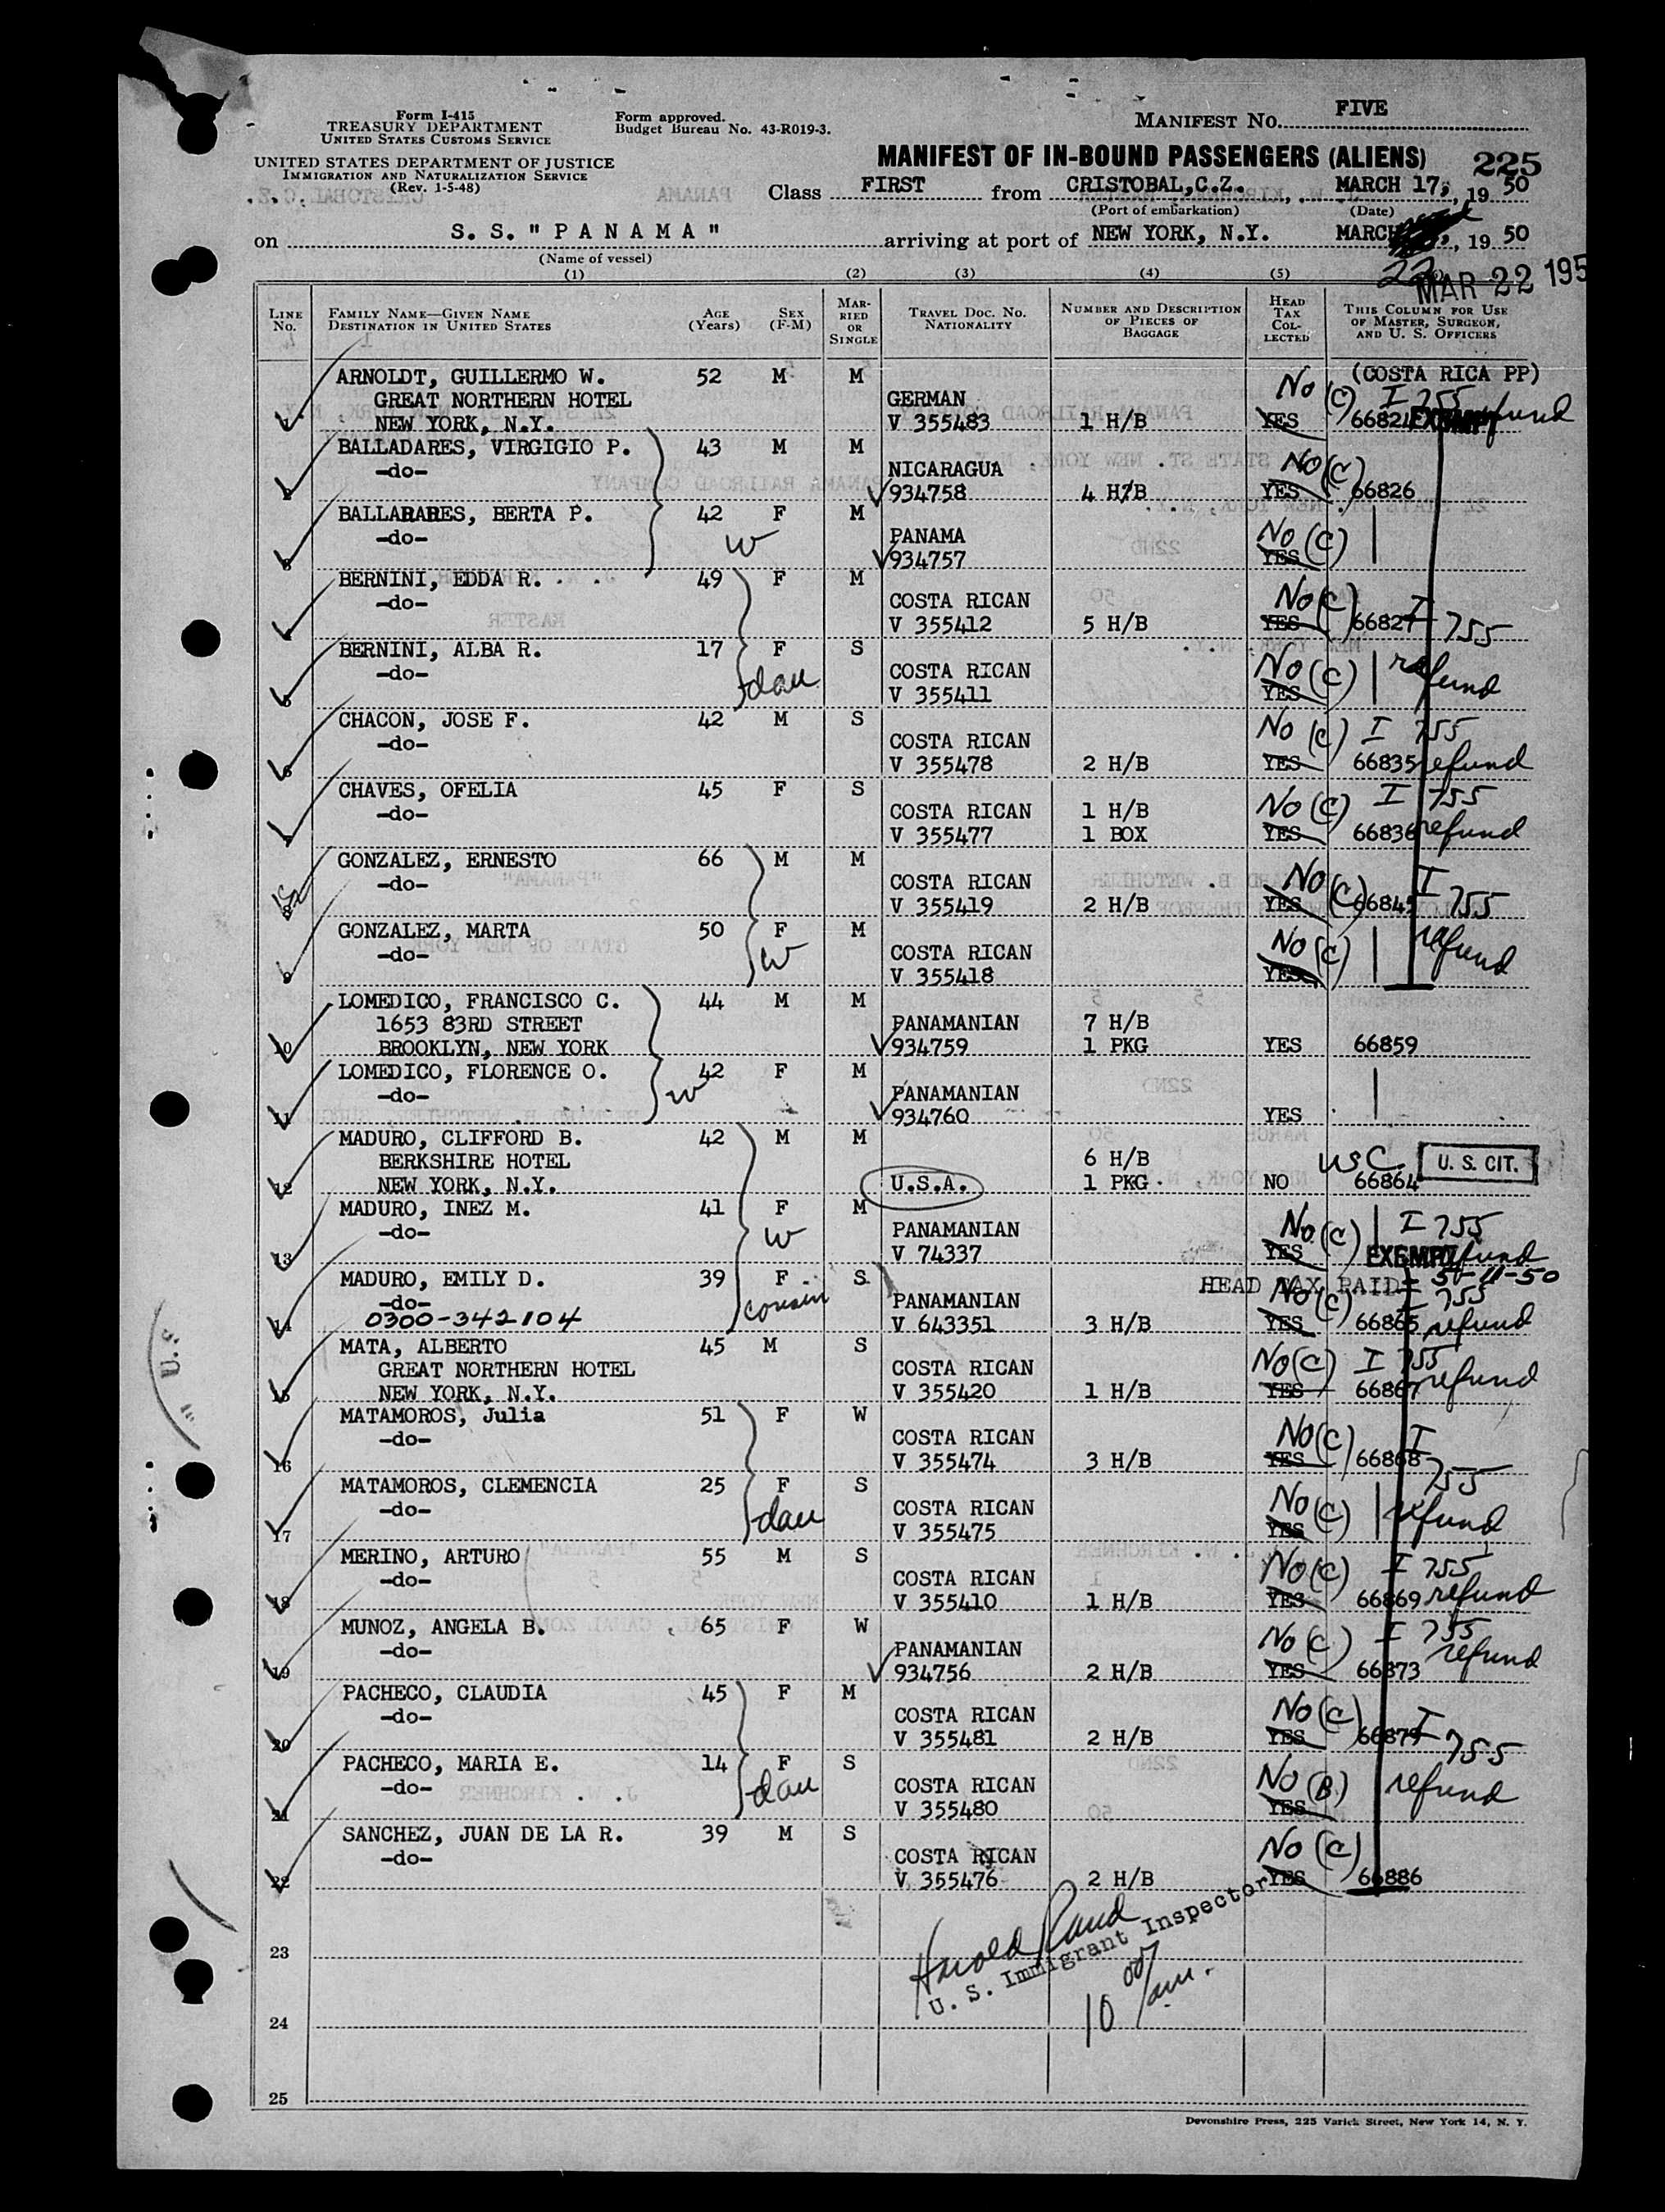 Form I-415
TREASURY DEPARTMENT
UNITED STATES CUSTOMS SERVICE
UNITED STATES DEPARTMENT OF JUSTICE
IMMIGRATION AND NATURALIZATION SERVICE
(Rev. 1-5-48)
Form approved.
Budget Bureau No. 43-R019-3.
MANIFEST NO. FIVE
MANIFEST OF IN-BOUND PASSENGERS (ALIENS) 225
Class FIRST from CRISTOBAL,C.Z. MARCH 17, 19 50
(Port of embarkation) (Date)
on S. S. " P A N A M A " arriving at port of NEW YORK, N.Y. MARCH , 19 50
(Name of vessel)
22
MAR 22 195
(1) (2) (3) (4) (5)
LINE No. FAMILY NAME—GIVEN NAME DESTINATION IN UNITED STATES AGE (Years) SEX (F-M) MARRIED OR SINGLE TRAVEL DOC. NO. NATIONALITY NUMBER AND DESCRIPTION OF PIECES OF BAGGAGE HEAD TAX COLLECTED THIS COLUMN FOR USE OF MASTER, SURGEON, AND U. S. OFFICERS
ARNOLDT, GUILLERMO W. 52 M M (COSTA RICA PP)
GREAT NORTHERN HOTEL GERMAN No (C) I 755
1 NEW YORK, N.Y. V 355483 1 H/B YES 66821 EXEMPT refund
BALLADARES, VIRGIGIO P. 43 M M
-do- NICARAGUA No (C)
2 934758 4 H/B YES 66826
BALLARARES, BERTA P. 42 F M
-do- w PANAMA No (C)
3 934757 YES
BERNINI, EDDA R. 49 F M
-do- COSTA RICAN No (C) I
4 V 355412 5 H/B YES 66827 755
BERNINI, ALBA R. 17 F S
-do- dau COSTA RICAN No (C) refund
5 V 355411 YES
CHACON, JOSE F. 42 M S
-do- COSTA RICAN No (C) I 755
6 V 355478 2 H/B YES 66835 refund
CHAVES, OFELIA 45 F S
-do- COSTA RICAN 1 H/B No (C) I 755
7 V 355477 1 BOX YES 66836 refund
GONZALEZ, ERNESTO 66 M M
-do- COSTA RICAN No (C) I
8 V 355419 2 H/B YES 66845 755
GONZALEZ, MARTA 50 F M
-do- w COSTA RICAN No (C) refund
9 V 355418 YES
LOMEDICO, FRANCISCO C. 44 M M
1653 83RD STREET PANAMANIAN 7 H/B
10 BROOKLYN, NEW YORK 934759 1 PKG YES 66859
LOMEDICO, FLORENCE O. 42 F M
-do- w PANAMANIAN
11 934760 YES
MADURO, CLIFFORD B. 42 M M
BERKSHIRE HOTEL 6 H/B USC U. S. CIT.
12 NEW YORK, N.Y. U.S.A. 1 PKG NO 66864
MADURO, INEZ M. 41 F M
-do- w PANAMANIAN No (C) I 755
13 V 74337 YES EXEMPT refund
MADURO, EMILY D. 39 F S HEAD TAX PAID 5-11-50
-do- cousin PANAMANIAN No (C) I 755
14 0300-342104 V 643351 3 H/B YES 66865 refund
MATA, ALBERTO 45 M S
GREAT NORTHERN HOTEL COSTA RICAN No (C) I 755
15 NEW YORK, N.Y. V 355420 1 H/B YES 66867 refund
MATAMOROS, Julia 51 F W
-do- COSTA RICAN No (C) I
16 V 355474 3 H/B YES 66868 755
MATAMOROS, CLEMENCIA 25 F S
-do- dau COSTA RICAN No (C) refund
17 V 355475 YES
MERINO, ARTURO 55 M S
-do- COSTA RICAN No (C) I 755
18 V 355410 1 H/B YES 66869 refund
MUNOZ, ANGELA B. 65 F W
-do- PANAMANIAN No (C) I 755
19 934756 2 H/B YES 66873 refund
PACHECO, CLAUDIA 45 F M
-do- COSTA RICAN No (C) I
20 V 355481 2 H/B YES 66879 755
PACHECO, MARIA E. 14 F S
-do- dau COSTA RICAN No (B) refund
21 V 355480 YES
SANCHEZ, JUAN DE LA R. 39 M S
-do- COSTA RICAN No (C)
22 V 355476 2 H/B YES 66886
Harold Rand
U. S. Immigrant Inspector
10 00/am.
23
24
25
Devonshire Press, 225 Varick Street, New York 14, N. Y.